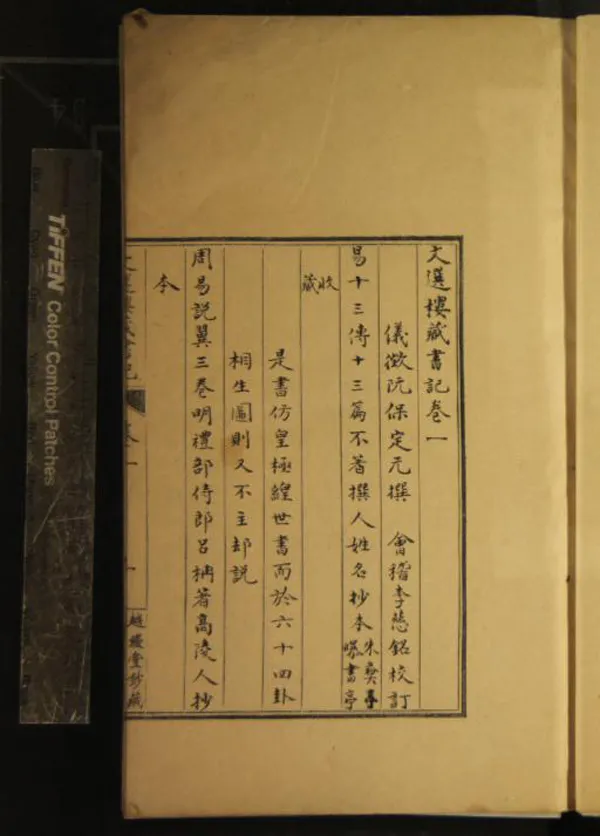 文選樓藏書記卷一
儀徵阮保定元撰 會稽李慈銘校訂
易十三傳十三篇不著撰人姓名抄本朱彝尊曝書亭
收藏
是書仿皇極經世書而於六十四卦
相生圖則又不主邵說
周易說翼三卷明禮部侍郎呂柟著高陵人抄
本
文選樓藏書記
卷一
一
越縵堂鈔藏
TIFFEN Color Control Patches